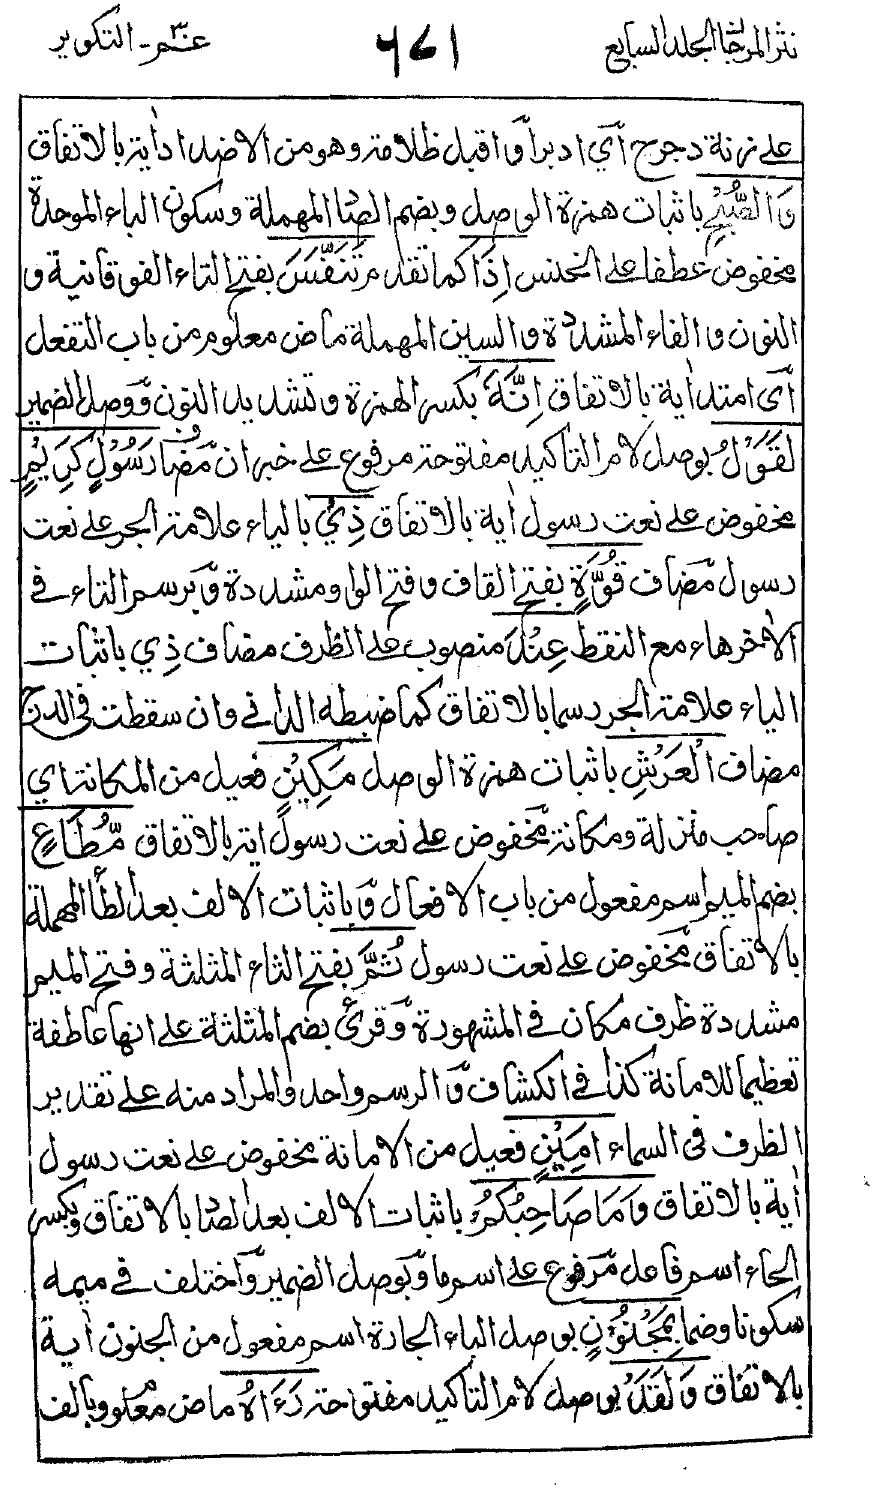 نثر المرجان الجلد السابع
٦٧١
عم - التكوير
على زنة دحرج آي ادبر أو اقبل ظلامه وهو من الاضداد اٰية بالاتفاق
وَالصُّبْحِ باثبات همزة الوصل وبضم الصاد المهملة وسكون الباء الموحدة
مخفوض عطفا على الخنس إِذَا كما تقدم تَنَفَّسَ بفتح التاء الفوقانية و
النون والفاء المشددة والسين المهملة ماض معلوم من باب التفعل
آي امتد اٰية بالاتفاق إِنَّهُ بكسر الهمزة وتشديد النون ووصل الضمير
لَقَوْلُ بوصل لام التاكيد مفتوحة مرفوع على خبر ان مضاف رَسُوْلٍ كَرِيْمٍ
مخفوض على نعت رسول اٰية بالاتفاق ذِيْ بالياء علامة الجر على نعت
رسول مضاف قُوَّةٍ بفتح القاف وفتح الواو مشددة وبرسم التاء في
الاٰخر هاء مع النقط عِنْدَ منصوب على الظرف مضاف ذِي باثبات
الياء علامة الجر رسما بالاتفاق كما ضبطه الداني وان سقطت في الدرج
مضاف الْعَرْشِ باثبات همزة الوصل مَكِيْنٍ فعيل من المكانة اي
صاحب منزلة ومكانة مخفوض على نعت رسول اية بالاتفاق مُّطَاعٍ
بضم الميم اسم مفعول من باب الافعال وباثبات الالف بعد الطاء المهملة
بالاتفاق مخفوض على نعت رسول ثَمَّ بفتح الثاء المثلثة وفتح الميم
مشددة ظرف مكان في المشهورة وقرئ بضم المثلثة على انها عاطفة
تعظيما للامانة كذا في الكشاف والرسم واحد والمراد منه على تقدير
الظرف في السماء اَمِيْنٍ فعيل من الامانة مخفوض على نعت رسول
اٰية بالاتفاق وَمَا صَاحِبُكُمْ باثبات الالف بعد الصاد بالاتفاق وبكسر
الحاء اسم فاعل مرفوع على اسم ما وبوصل الضمير واختلف في ميمه
سكونا وضما بِمَجْنُوْنٍ بوصل الباء الجارة اسم مفعول من الجنون اٰية
بالاتفاق وَلَقَدْ بوصل لام التاكيد مفتوحة رَءَاهُ ماض معلوم وبالف